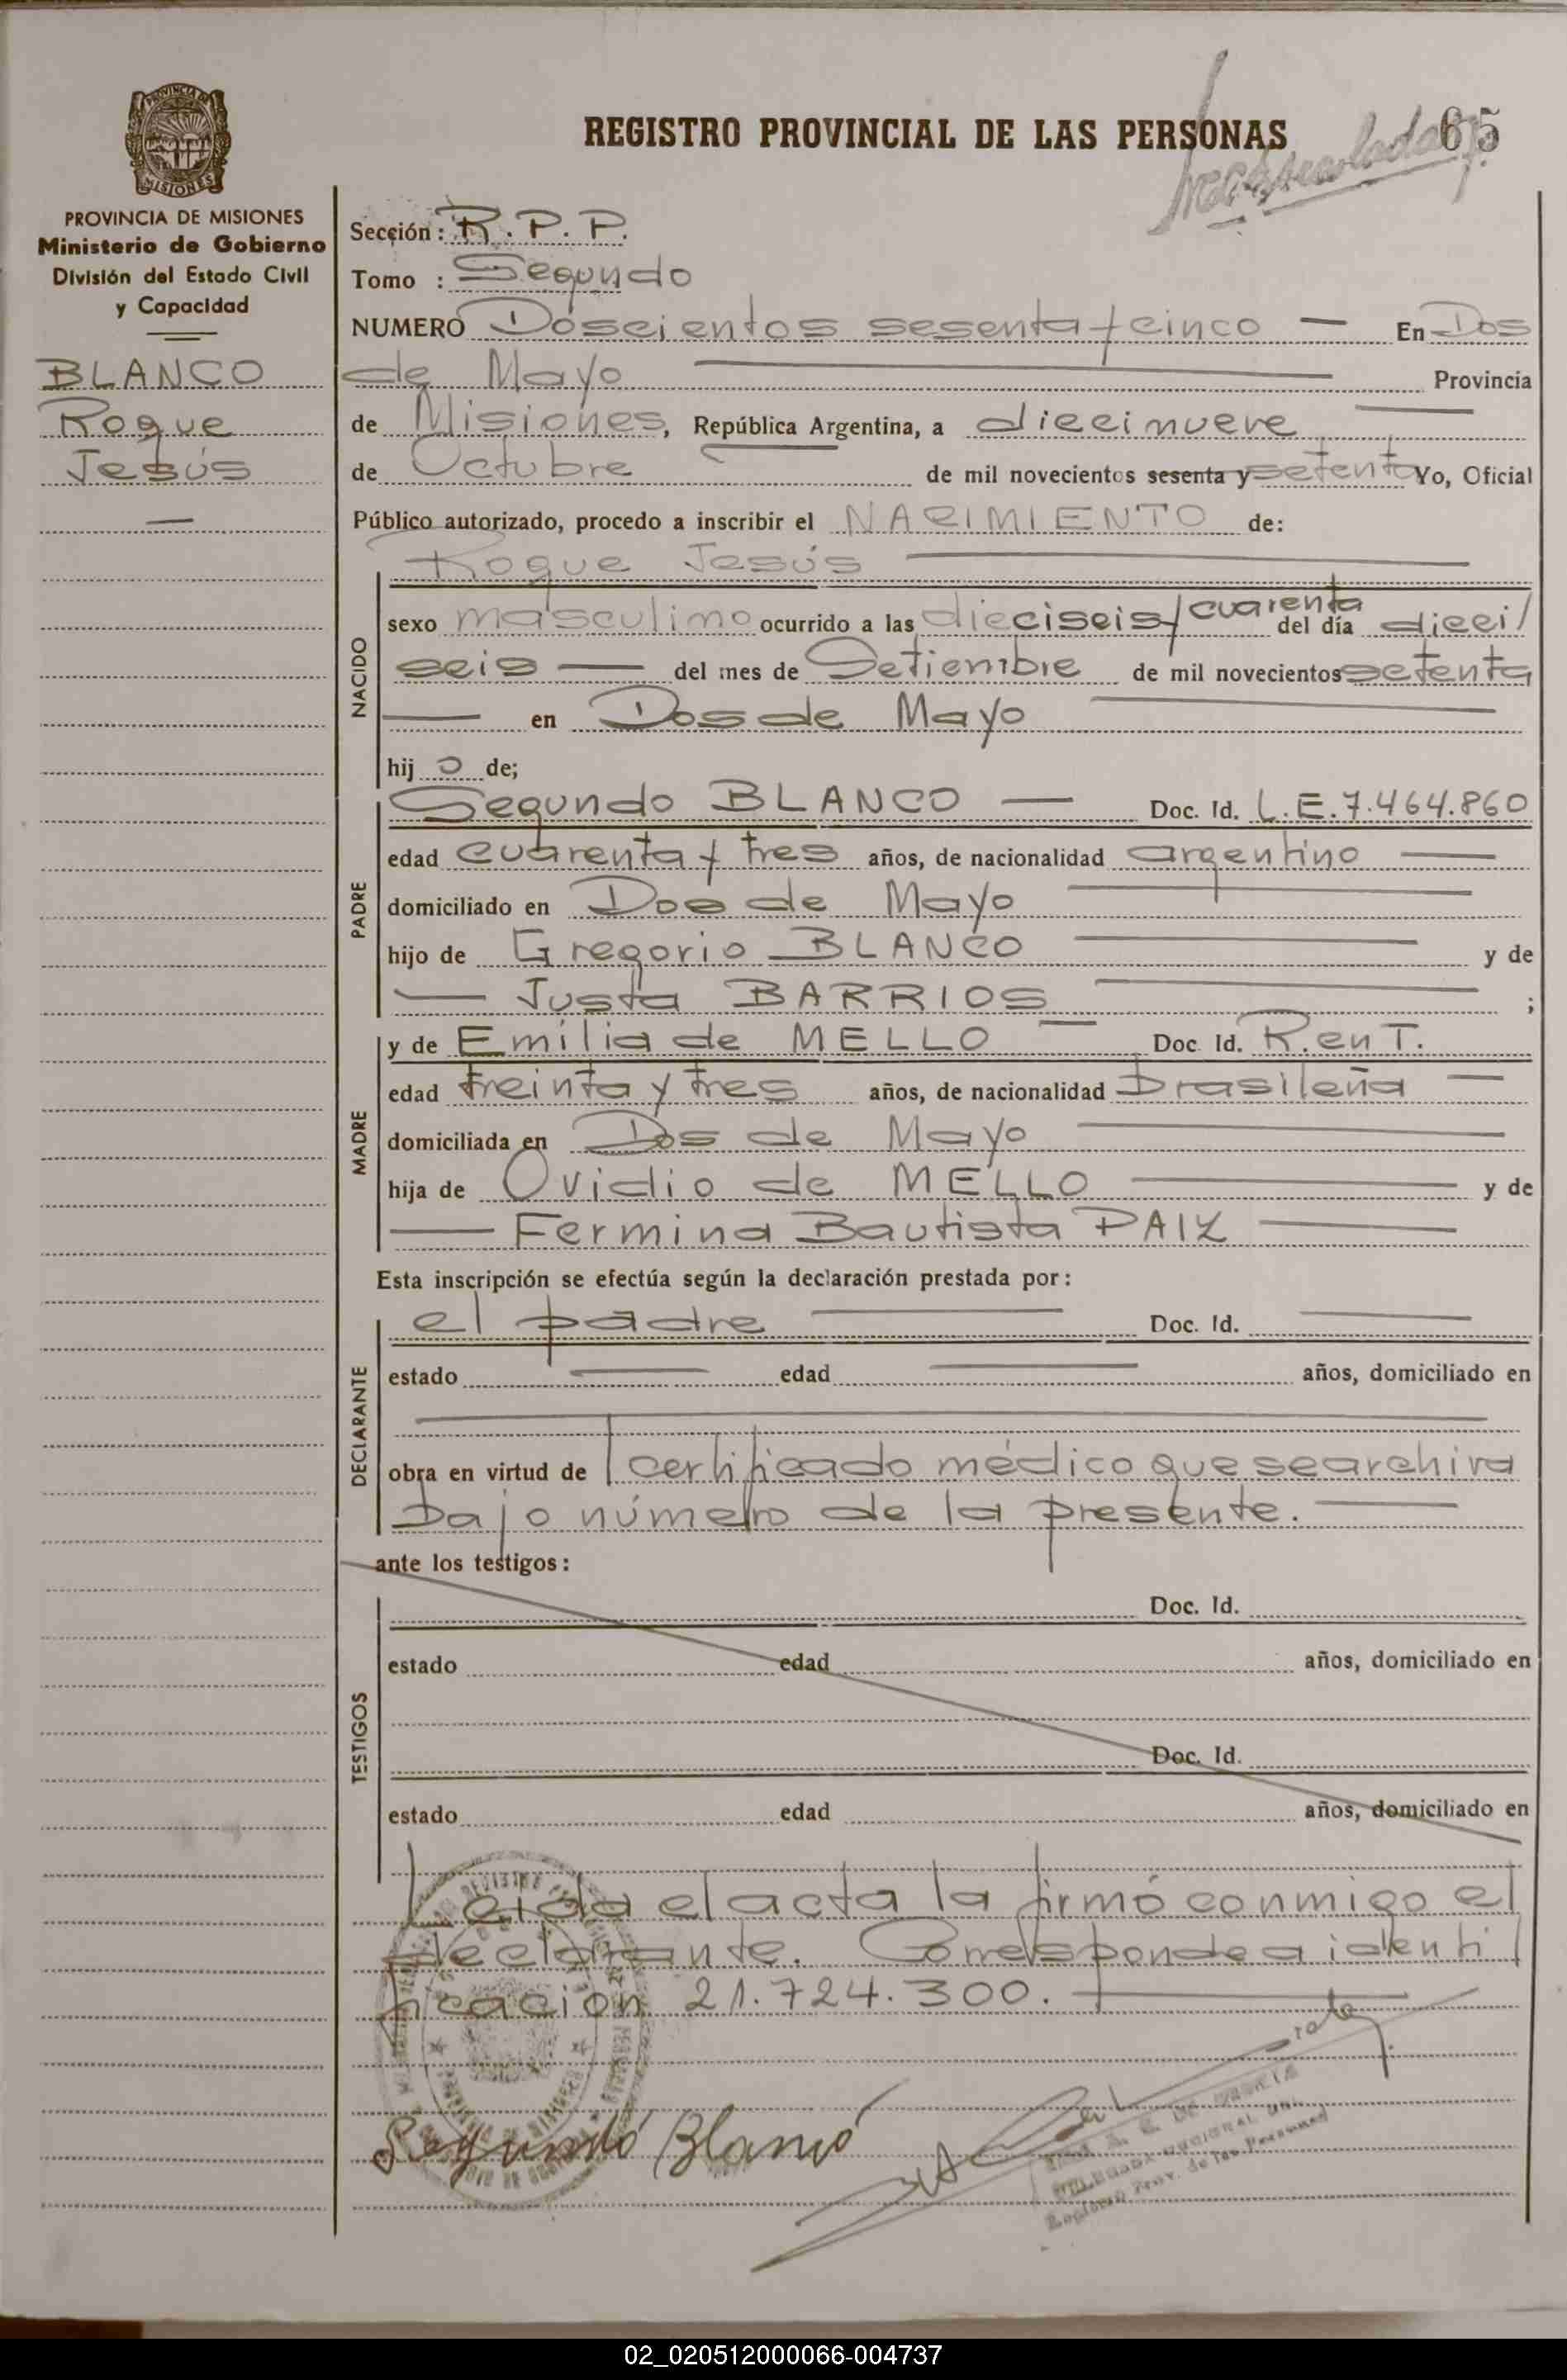 REGISTRO PROVINCIAL DE LAS PERSONAS
65
PROVINCIA DE MISIONES
Ministerio de Gobierno
División del Estado Civil
y Capacidad
BLANCO
Roque
Jesús
Sección : R. P. P.
Tomo : Segundo
NUMERO Doscientos sesenta y cinco — En Dos
de Mayo — Provincia
de Misiones, República Argentina, a diecinueve —
de Octubre de mil novecientos sesenta y setenta Yo, Oficial
Público autorizado, procedo a inscribir el NACIMIENTO de:
Roque Jesús —
NACIDO
sexo masculino ocurrido a las dieciseis/cuarenta del día dieci/
seis — del mes de Setiembre de mil novecientos setenta
— en Dos de Mayo —
hij o de;
PADRE
Segundo BLANCO — Doc. Id. L.E. 7.464.860
edad cuarenta y tres años, de nacionalidad argentino —
domiciliado en Dos de Mayo —
hijo de Gregorio BLANCO — y de
— Justa BARRIOS — ;
MADRE
y de Emilia de MELLO — Doc. Id. R. en T.
edad treinta y tres años, de nacionalidad brasileña —
domiciliada en Dos de Mayo —
hija de Ovidio de MELLO — y de
— Fermina Bautista PAIZ —
Esta inscripción se efectúa según la declaración prestada por:
DECLARANTE
el padre — Doc. Id. —
estado — edad — años, domiciliado en
—
obra en virtud de / certificado médico que se archiva
bajo número de la presente. —
ante los testigos:
TESTIGOS
Doc. Id.
estado edad años, domiciliado en
Doc. Id.
estado edad años, domiciliado en
Leida el acta la firmó conmigo el
declarante. Corresponde a identi/
ficación 21.724.300. —
Segundo Blanco
02_020512000066-004737